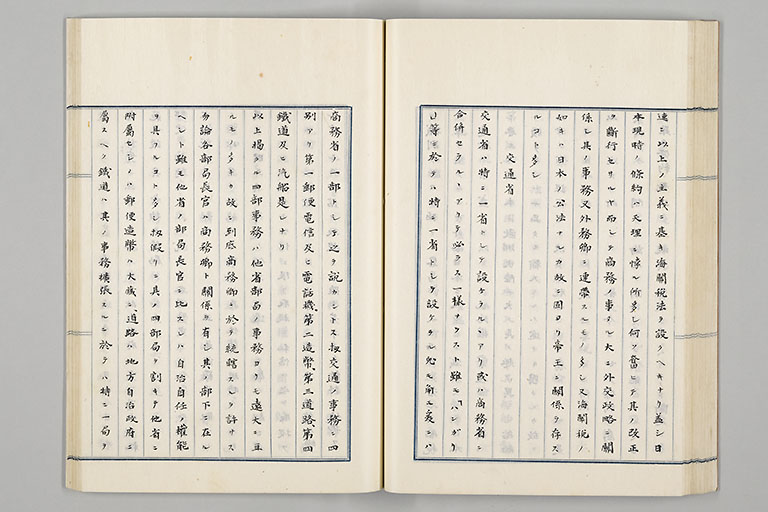 速ニ以上ノ主義ニ基キ海關税法ヲ設クヘキナリ蓋シ日
本現時ノ條約ハ天理ニ悖ル所多シ何ソ奮ヒテ其ノ改正
ヲ斷行セサルヤ而シテ商務ノ事タル大ニ外交政略ニ關
係シ其ノ事務又外務卿ニ連帶スルモノ多シ又海關税ノ
如キハ日本ノ公法ナルカ故ニ固ヨリ帝王ニ關係ヲ存ス
ルコト多シ
交通省
交通省ハ特ニ一省トシテ設ケラルヽアリ或ハ商務省ニ
合併セラルヽアリテ必ラス一樣ナラスト雖モ「ハンガリ
ー」等ニ於テハ特ニ一省トシテ設ケタル尤モ角ル爰ニハ
商務省ノ一部トシテ之ヲ説カントス拟交通ノ事務ニ四
別アリ第一郵便電信及ヒ電話機第二造幣第三道路第四
鐵道及ヒ汽船是レナリ
以上掲クル四部事務ハ他省部局ノ事務ヨリモ遠大ニ主
ルモノ多キカ故ニ到底商務卿ニ於テ統轄スルヲ許サス
勿論各部局長官ハ商務卿ト關係ヲ有シ其ノ部下ニ在ル
ヘシト雖モ他省ノ部局長官ニ比スレハ自治自任ノ權能
ヲ具フルコト多シ拟假リニ其ノ四部局ヲ割キテ他省ニ
附屬セシメハ郵便造幣ハ大藏ニ道路ハ地方自治政府ニ
屬スヘク鐵道ハ其ノ事務擴張スルニ於テハ特ニ一局ヲ